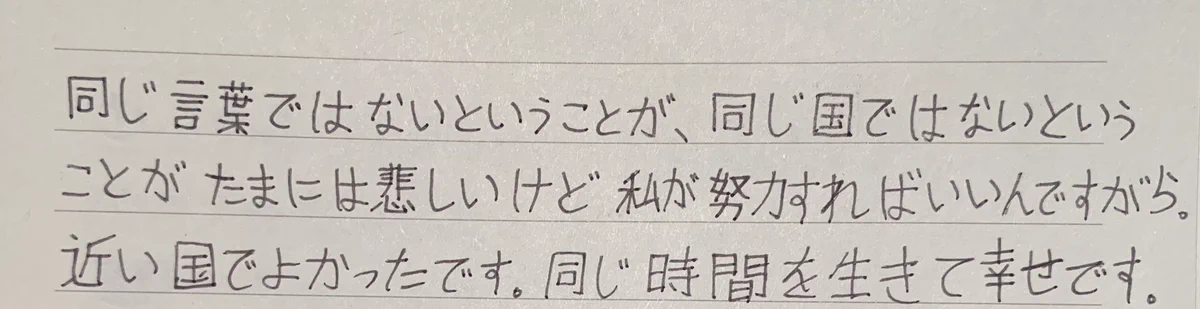 同じ言葉ではないということが、同じ国ではないという
ことがたまには悲しいけど 私が努力すればいいんですがら。
近い国でよかったです。同じ時間を生きて幸せです。